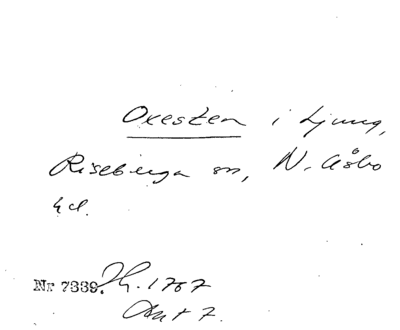 Oxesten i Ljung,
Riseberga sn, N. Åsbo
hd.
Nr 7339. 1787